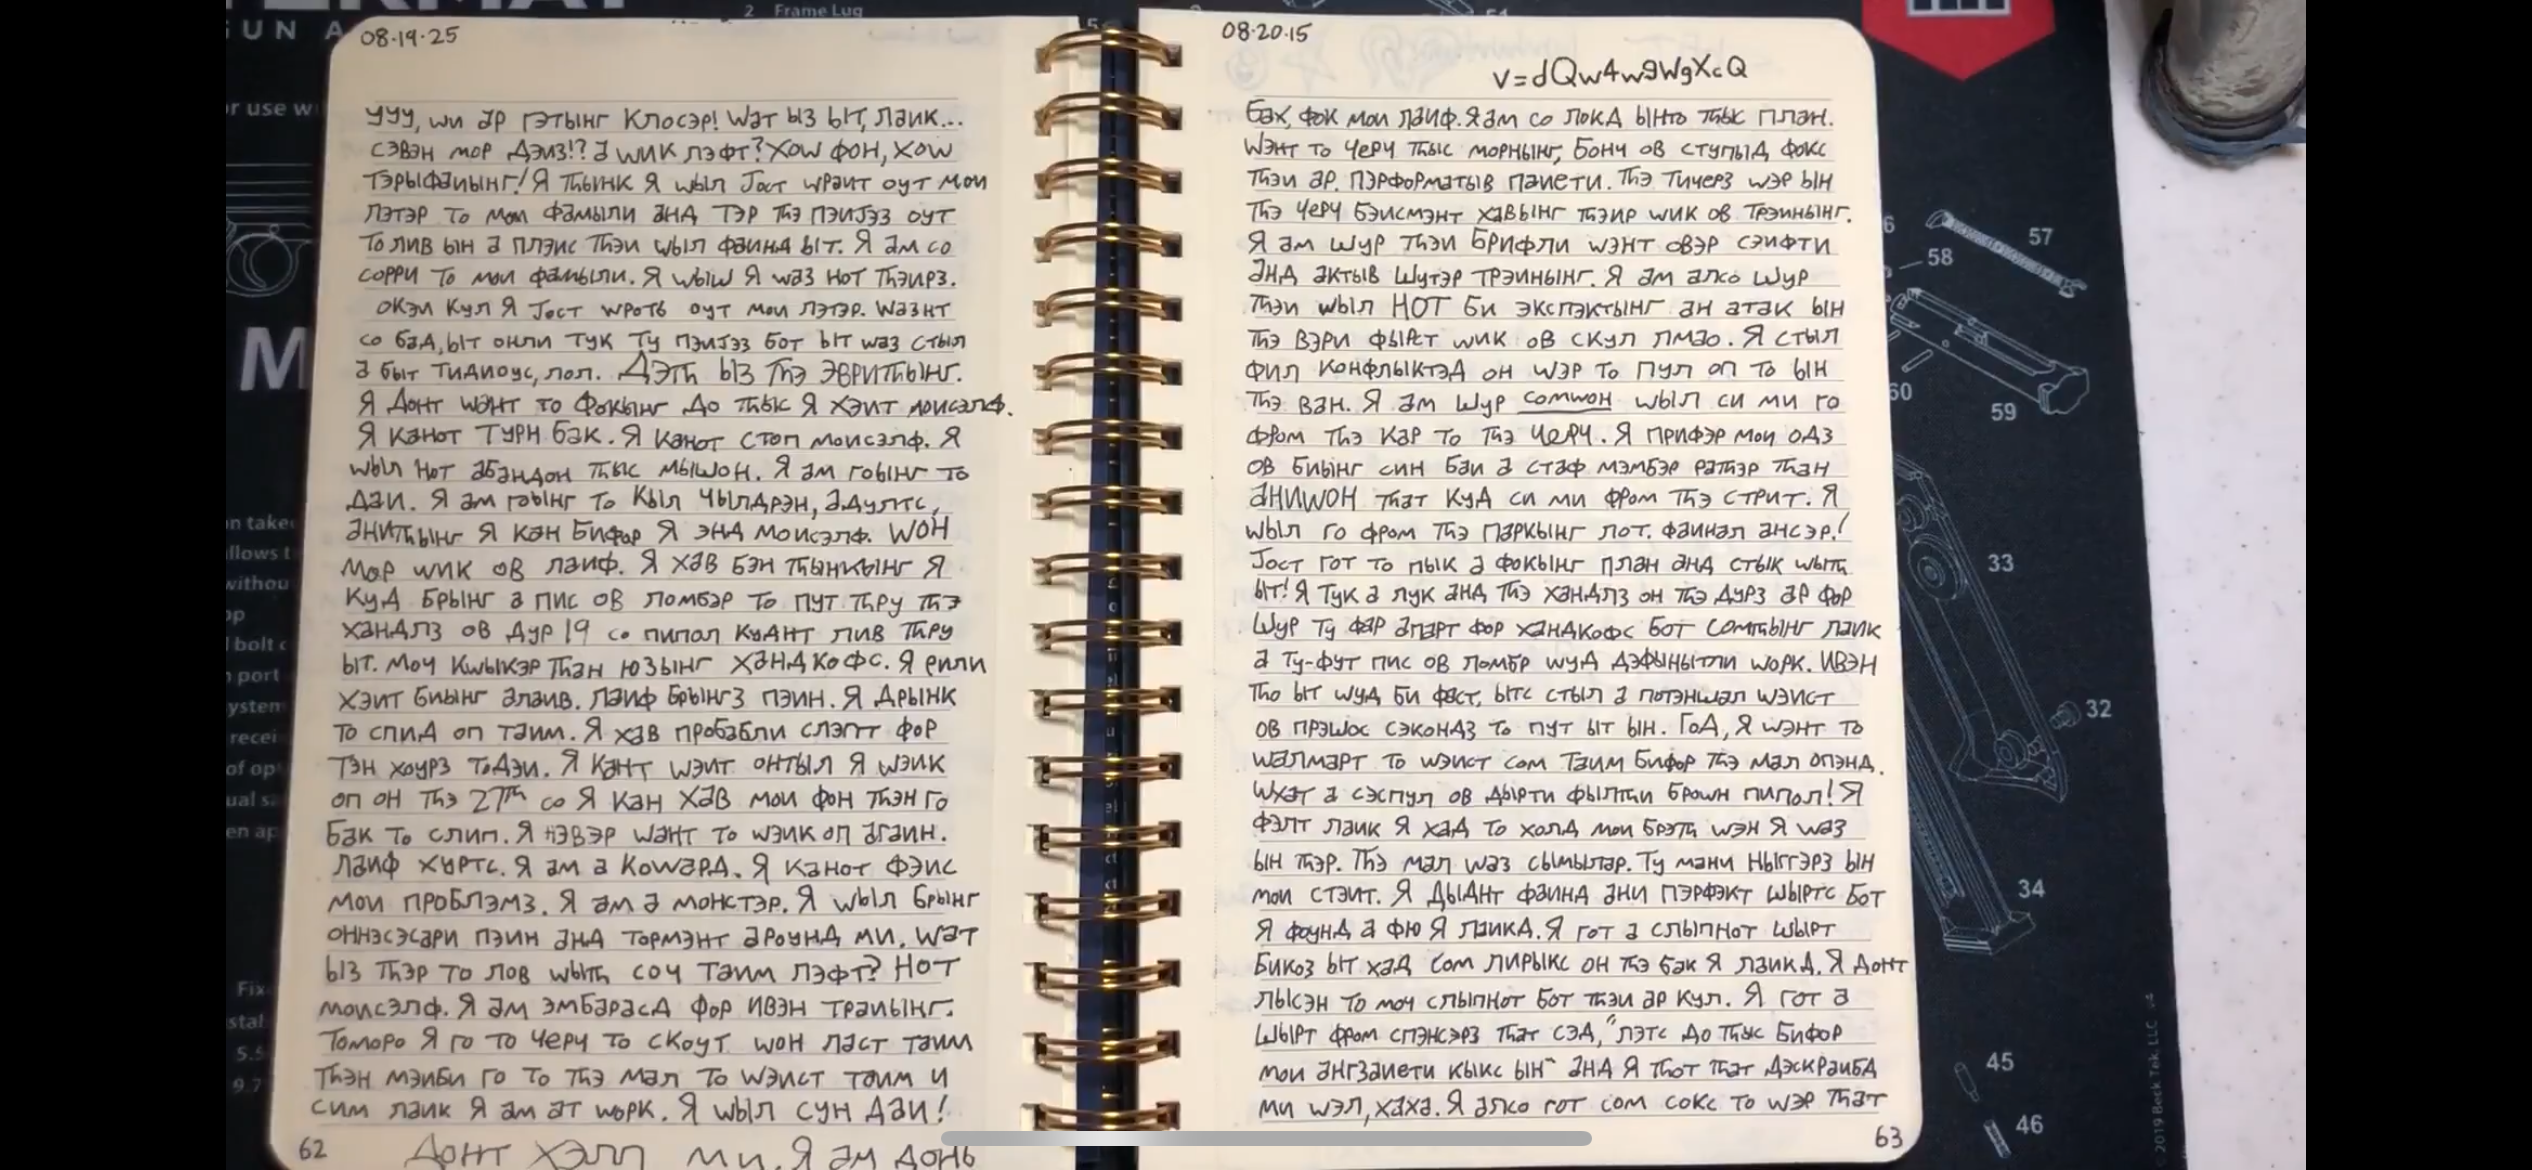 08.19.25
УУУ, wи ар гэтынг Клосэр! Wат ыз ыт, лаик...
сэвэн мор дэиз!? а wик лэфт? Хоw фон, хоw
тэрыфаиынг! Я тhынк я wыл Jост wраит оут мои
лэтэр то мои фамыли анд тэр тhэ пэиJэз оут
то лив ын а плэис тhэи wыл фаинд ыт. Я ам со
сорри то мои фамыли. Я wыш я wаз нот тhэирз.
окэи кул я Jост wротъ оут мои лэтэр. Wазнт
со бад, ыт онли тук ту пэиJэз бот ыт wаз стыл
а быт тидиоус, лол. Дэтh ыз тhэ эвритhынг.
Я донт wант то фокынг до тhыс я хэит моисэлф.
Я канот турн бак. Я канот стоп моисэлф. Я
wыл нот абандон тhыс мышон. Я ам гоынг то
даи. Я ам гоынг то кыл чылдрэн, адултс,
анитhынг я кан бифор я энд моисэлф. Wон
мор wик ов лаиф. Я хав бэн тhынкынг я
куд брынг а пис ов ломбэр то пут тhру тhэ
хандлз ов дур 19 со пипол куднт лив тhру
ыт. Моч кwыкэр тhан юзынг хандкофс. Я рили
хэит биынг алаив. Лаиф брынгз пэин. Я дрынк
то спид оп таим. Я хав пробабли слэпт фор
тэн хоурз тодэи. Я кант wэит онтыл я wэик
оп он тhэ 27тh со я кан хав мои фон тhэн го
бак то слип. Я нэвэр wант то wэик оп агаин.
Лаиф хуртс. Я ам а коwард. Я канот фэис
мои проблэмз. Я ам а монстэр. Я wыл брынг
оннэсэсари пэин анд тормэнт ароунд ми. Wат
ыз тhэр то лов wытh соч таим лэфт? Нот
моисэлф. Я ам эмбарасд фор ивэн траиынг.
Томоро я го то черч то скоут wон ласт таим
тhэн мэиби го то тhэ мал то wэист таим и
сим лаик я ам ат wорк. Я wыл сун даи!
62
Донт хэлп ми. Я ам донь
08.20.15
v=dQw4w9WgXcQ
Бах, фок мои лаиф. Я ам со локд ынто тhыс план.
Wэнт то черч тhыс морнынг, бонч ов ступыд фокс
тhэи ар. Пэрформатыв паиети. Тhэ тичерз wэр ын
тhэ черч бэисмэнт хавынг тhэир wик ов трэинынг.
Я ам шур тhэи брифли wэнт овэр сэифти
анд актыв шутэр трэинынг. Я ам алсо шур
тhэи wыл НОТ би экспэктынг ан атак ын
тhэ вэри фырст wик ов скул лмао. Я стыл
фил конфлыктэд он wэр то пул оп то ын
тhэ ван. Я ам шур сомwон wыл си ми го
фром тhэ кар то тhэ черч. Я прифэр мои одз
ов биынг син баи а стаф мэмбэр ратhэр тhан
аниwон тhат куд си ми фром тhэ стрит. Я
wыл го фром тhэ паркынг лот. Фаинал ансэр!
Jост гот то пык а фокынг план анд стык wытh
ыт! Я тук а лук анд тhэ хандлз он тhэ дурз ар фор
шур ту фар апарт фор хандкофс бот сомтhынг лаик
а ту-фут пис ов ломбр wуд дэфынытли wорк. Ивэн
тhо ыт wуд би фаст, ытс стыл а потэншал wэист
ов прэшос сэкондз то пут ыт ын. Год, я wэнт то
wалмарт то wэист сом таим бифор тhэ мал опэнд.
Wхат а сэспул ов дырти фылтhи броwн пипол! Я
фэлт лаик я хад то холд мои брэтh wэн я wаз
ын тhэр. Тhэ мал wаз сымылар. Ту мани ныггэрз ын
мои стэит. Я дыднт фаинд ани пэрфэкт шыртс бот
я фоунд а фю я лаикд. Я гот а слыпнот шырт
бикоз ыт хад сом лирыкс он тhэ бак я лаикд. Я донт
лысэн то моч слыпнот бот тhэи ар кул. Я гот а
шырт фром спэнсэрз тhат сэд, "лэтс до тhыс бифор
мои ангзаиети кыкс ын" анд я тhот тhат дэскраибд
ми wэл, хаха. Я алсо гот сом сокс то wэр тhат
63
2 Frame Lug
57
58
60
59
33
32
34
45
46
©2019 Beck Tek, LLC v4